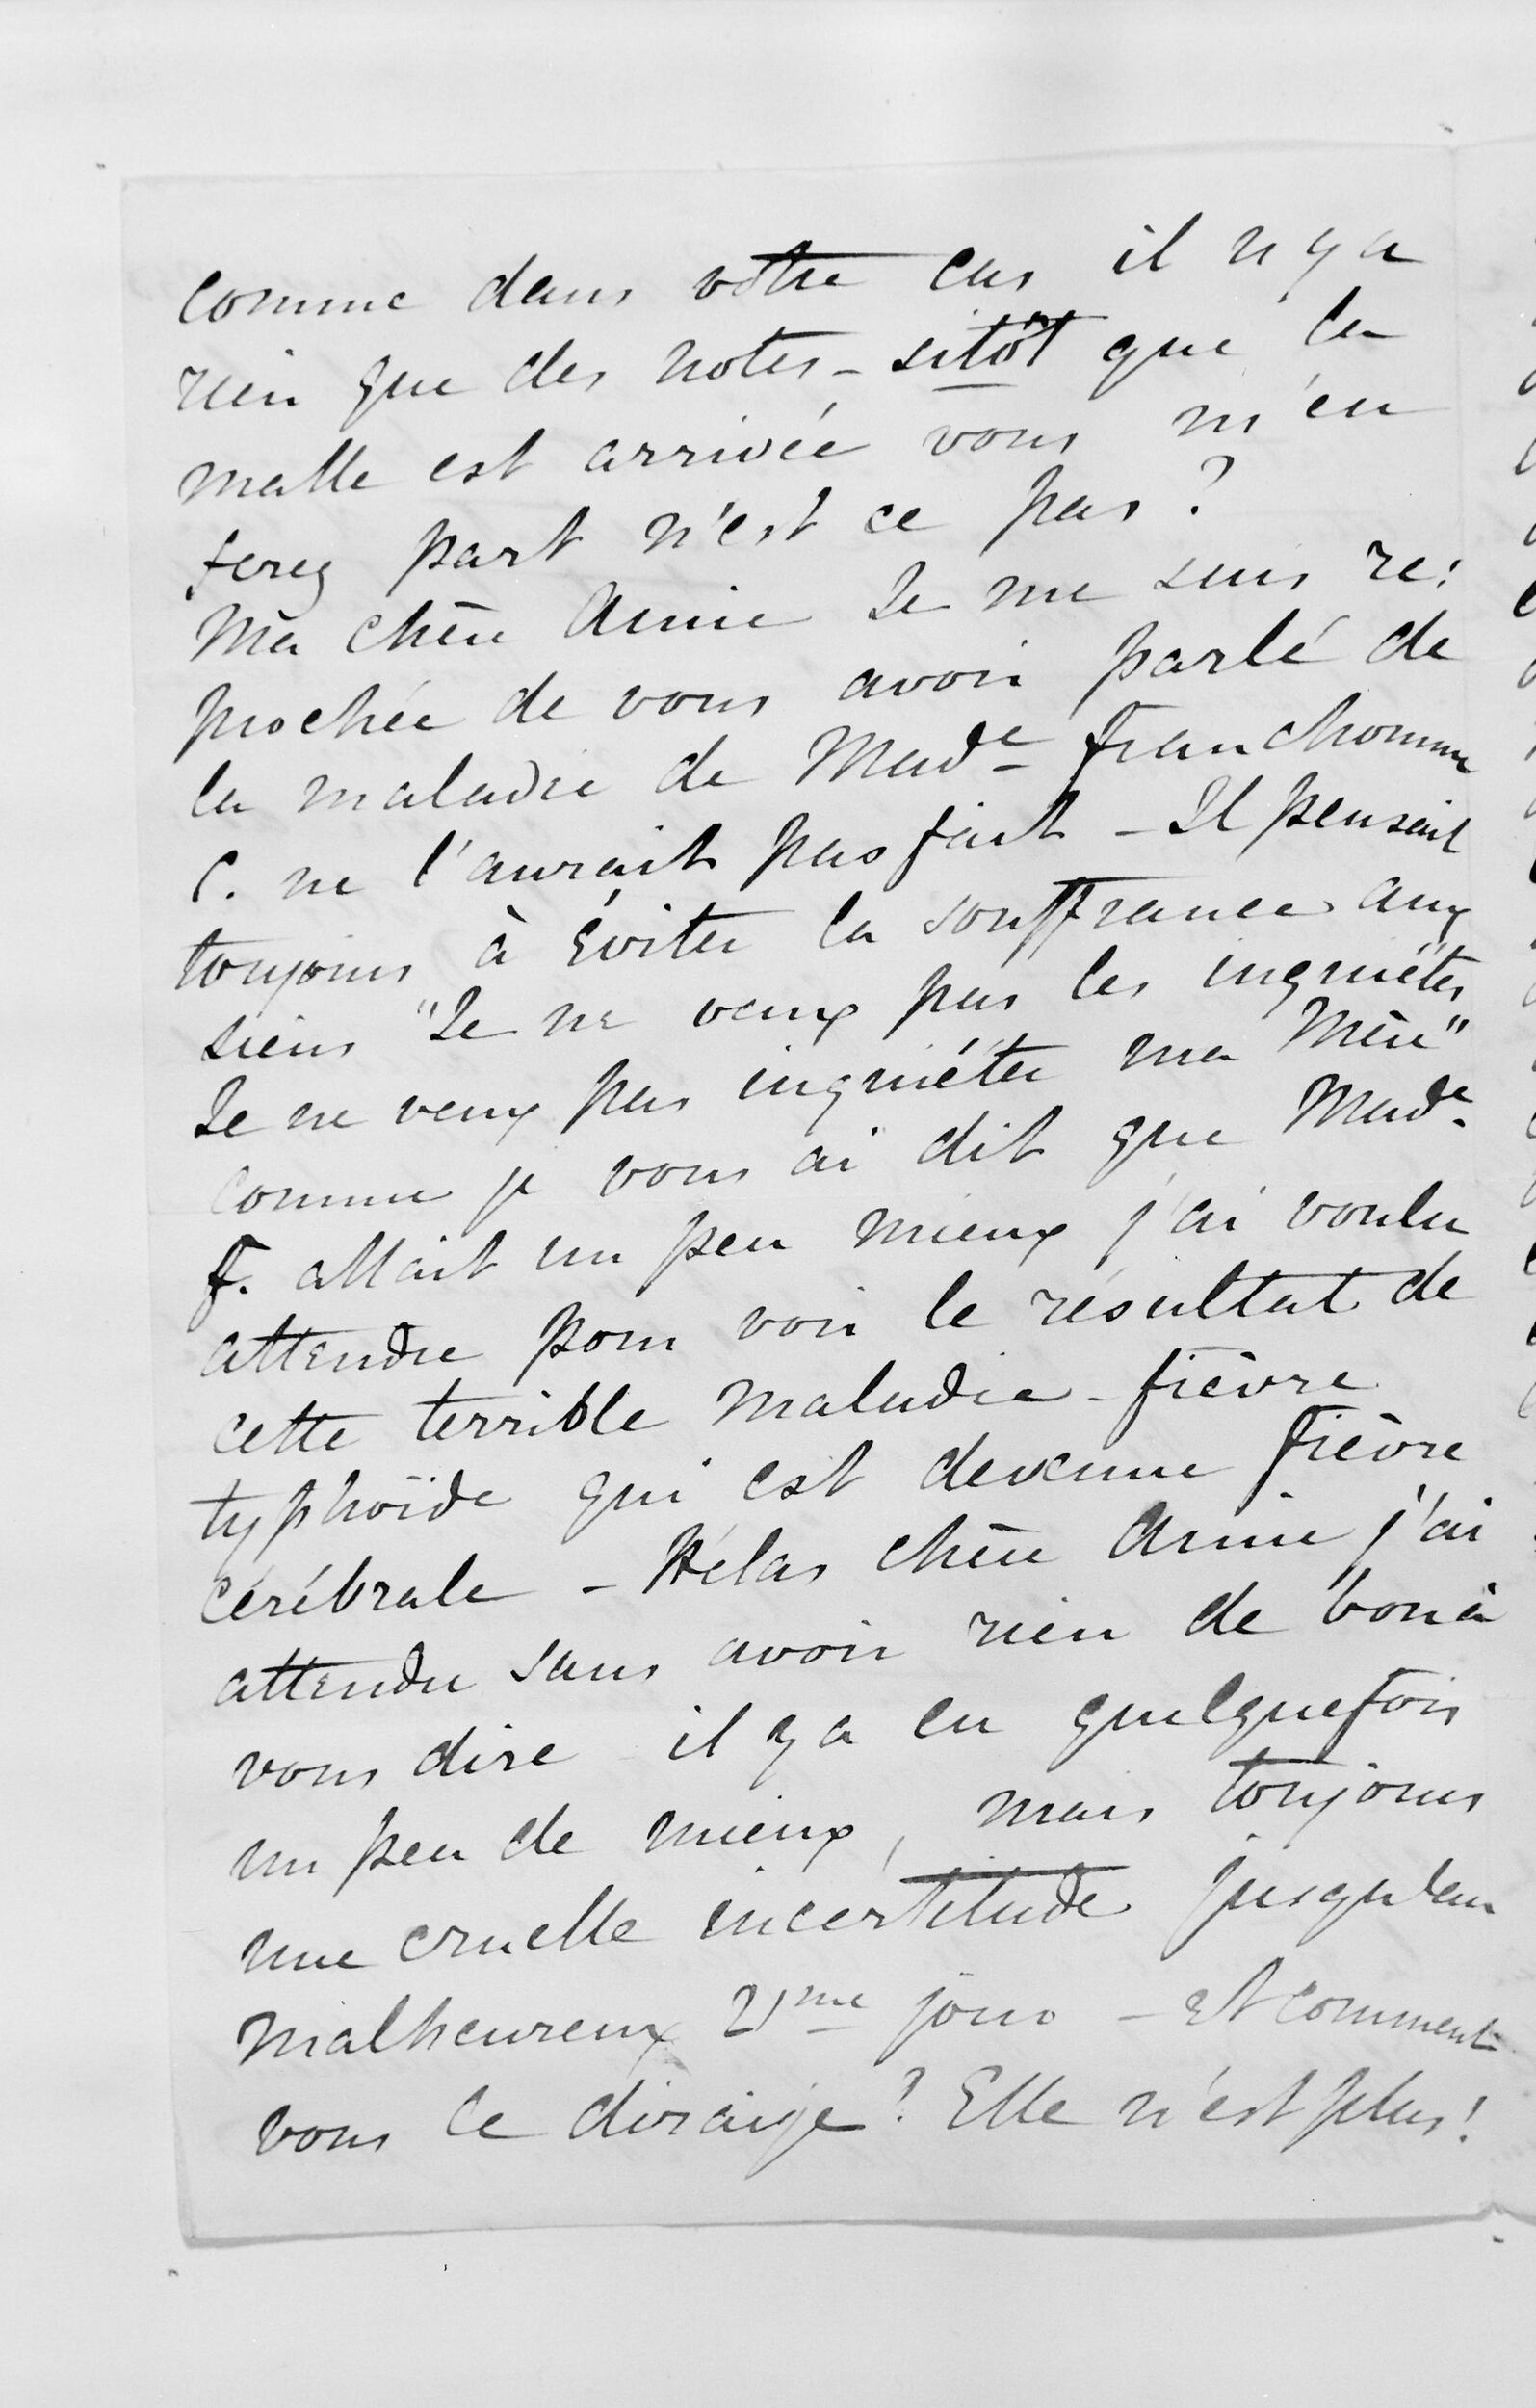 comme dans vôtre cas il n'y a
rien que des notes - sitôt que la
malle est arrivée vous m'en
ferez part n'est ce pas?
Ma chère Amie Je me suis re:
prochée de vous avoir parlé de
la maladie de Made Franchomme
C. ne l'aurait pas fait - Il pensait
toujours à éviter la souffrance aux
siens "Je ne veux pas les inquiéter
Je ne veux pas inquiéter ma Mère"
comme je vous ai dit que Made
F. allait un peu mieux j'ai voulu
attendre pour voir le résultat de
cette terrible maladie - fièvre
typhoïde qui est devenue fièvre
cérébrale - Hélas chère Amie j'ai
attendu sans avoir rien de bon à
vous dire - il y a eu quelquefois
un peu de mieux, mais toujours
une cruelle incertitude jusqu'au
malheureux 21me jour - Et comment
vous le diraije? Elle n'est plus!